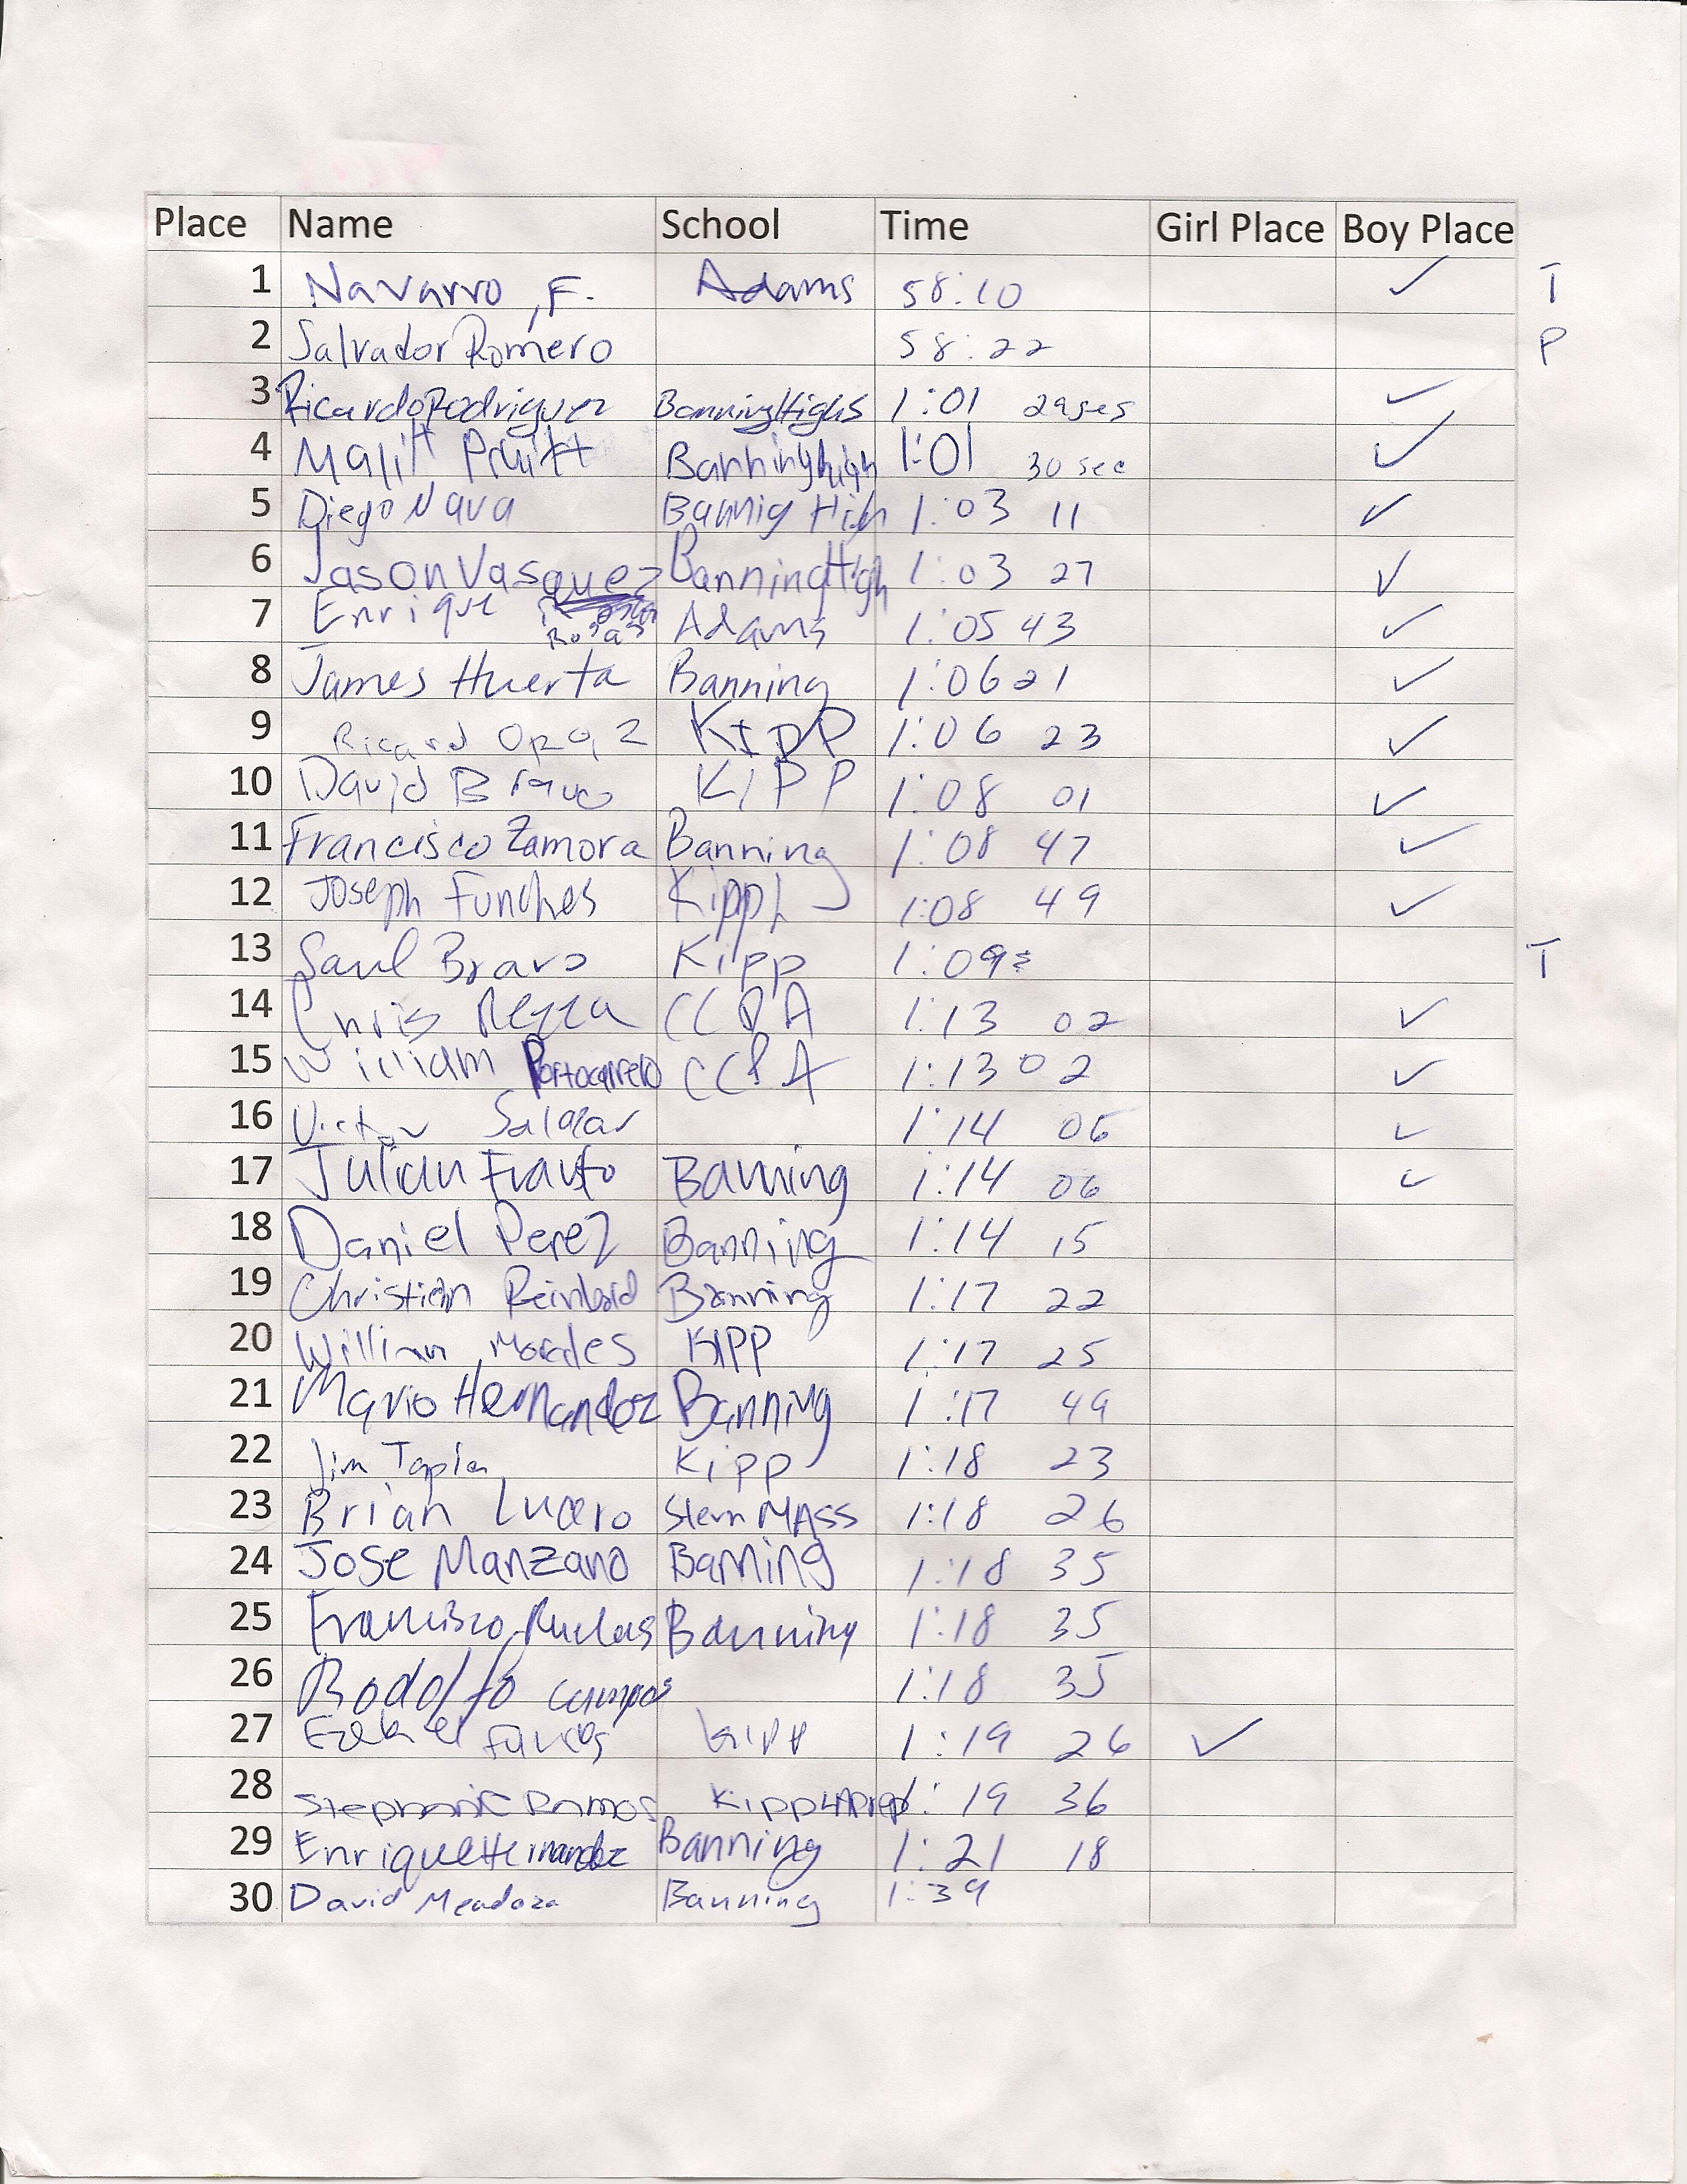 Place Name School Time Girl Place Boy Place
1 Navarro, F. Adams 58:10 ✓ T
2 Salvador Romero 58:22 P
3 Ricardo Rodriguez Banning Highs 1:01 29 ses ✓
4 Pruitt Banning high 1:01 30 sec ✓
5 Diego Nava Bannig High 1:03 11 ✓
6 Jason Vasquez Banning High 1:03 27 ✓
7 Enrique Rosas Adams 1:05 43 ✓
8 James Huerta Banning 1:06 21 ✓
9 Ricard KIPP 1:06 23 ✓
10 David Bravo KIPP 1:08 01 ✓
11 Francisco Zamora Banning 1:08 47 ✓
12 Joseph Funches Kipp 1:08 49 ✓
13 Saul Bravo Kipp 1:09 T
14 Chris 1:13 02 ✓
15 William Portocarrero CCPA 1:13 02 ✓
16 Victor Salazar 1:14 06 ✓
17 Julian Frausto Banning 1:14 06 ✓
18 Daniel Perez Banning 1:14 15
19 Christian Banning 1:17 22
20 William Morales KIPP 1:17 25
21 Mario Hernandez Banning 1:17 49
22 Jim Tapia Kipp 1:18 23
23 Brian Lucero Stern MASS 1:18 26
24 Jose Manzano Banning 1:18 35
25 Francisco Ruelas Banning 1:18 35
26 Rodolfo campos 1:18 35
27 Kipp 1:19 26 ✓
28 Stephanie Ramos Kipp LA Prep 1:19 36
29 Enrique Hernandez Banning 1:21 18
30 David Mendoza Banning 1:39